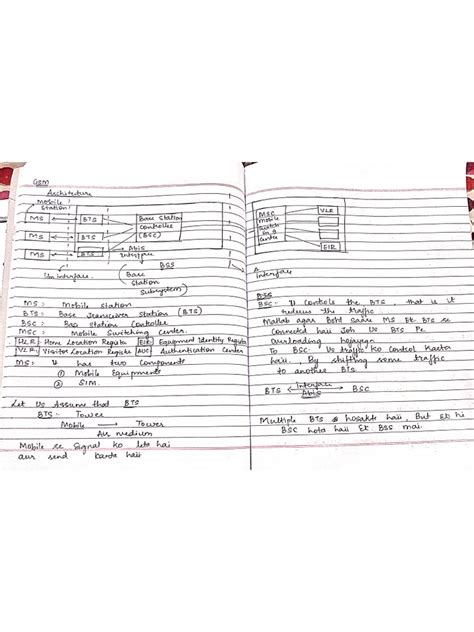 GSM
Architecture
Mobile
Station
MS
BTS
Base Station
Controller
(BSC)
MS
BTS
MS
BTS
Abis
Interface
Um interface
BSS
(Base
Station
Subsystem)
MS: Mobile Station
BTS: Base Transceiver Station (BTS)
BSC: Bas Station Controller
MSC: Mobile Switching Center
Home Location Register EIR Equipment Identity Register
VLR: Visitor Location Register AUC Authentication Center
MS: It has two Components
① Mobile Equipments
② SIM.
Let Us Assume that BTS
BTS - Tower
Mobile → Tower
Air medium
Mobile se Signal ko leta hai
aur send karta hai
MSC
Mobile
Center
VLR
EIR
A
Interface
BSS
BSC: It Controls the BTS, that is it
reduces the traffic
Matlab agar Boht Saare MS Ek BTS se
Connected haii Joh Us BTS Pe
Overloading hojayega
To BSC Us traffic ko Control Karta
haii, By shifting some traffic
to another BTS.
BTS Interface BSC
Abis
Multiple BTS hosakte haii, But Ek hi
BSC hota haii Ek BSS mai.